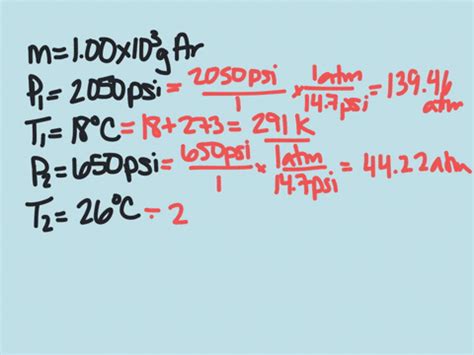 m=1.00x10³g Ar
P₁=2050psi=2050psi/1 x 1atm/14.7psi=139.46 atm
T₁=18°C=18+273=291K
P₂=650psi=650psi/1 x 1atm/14.7psi=44.22atm
T₂=26°C=2